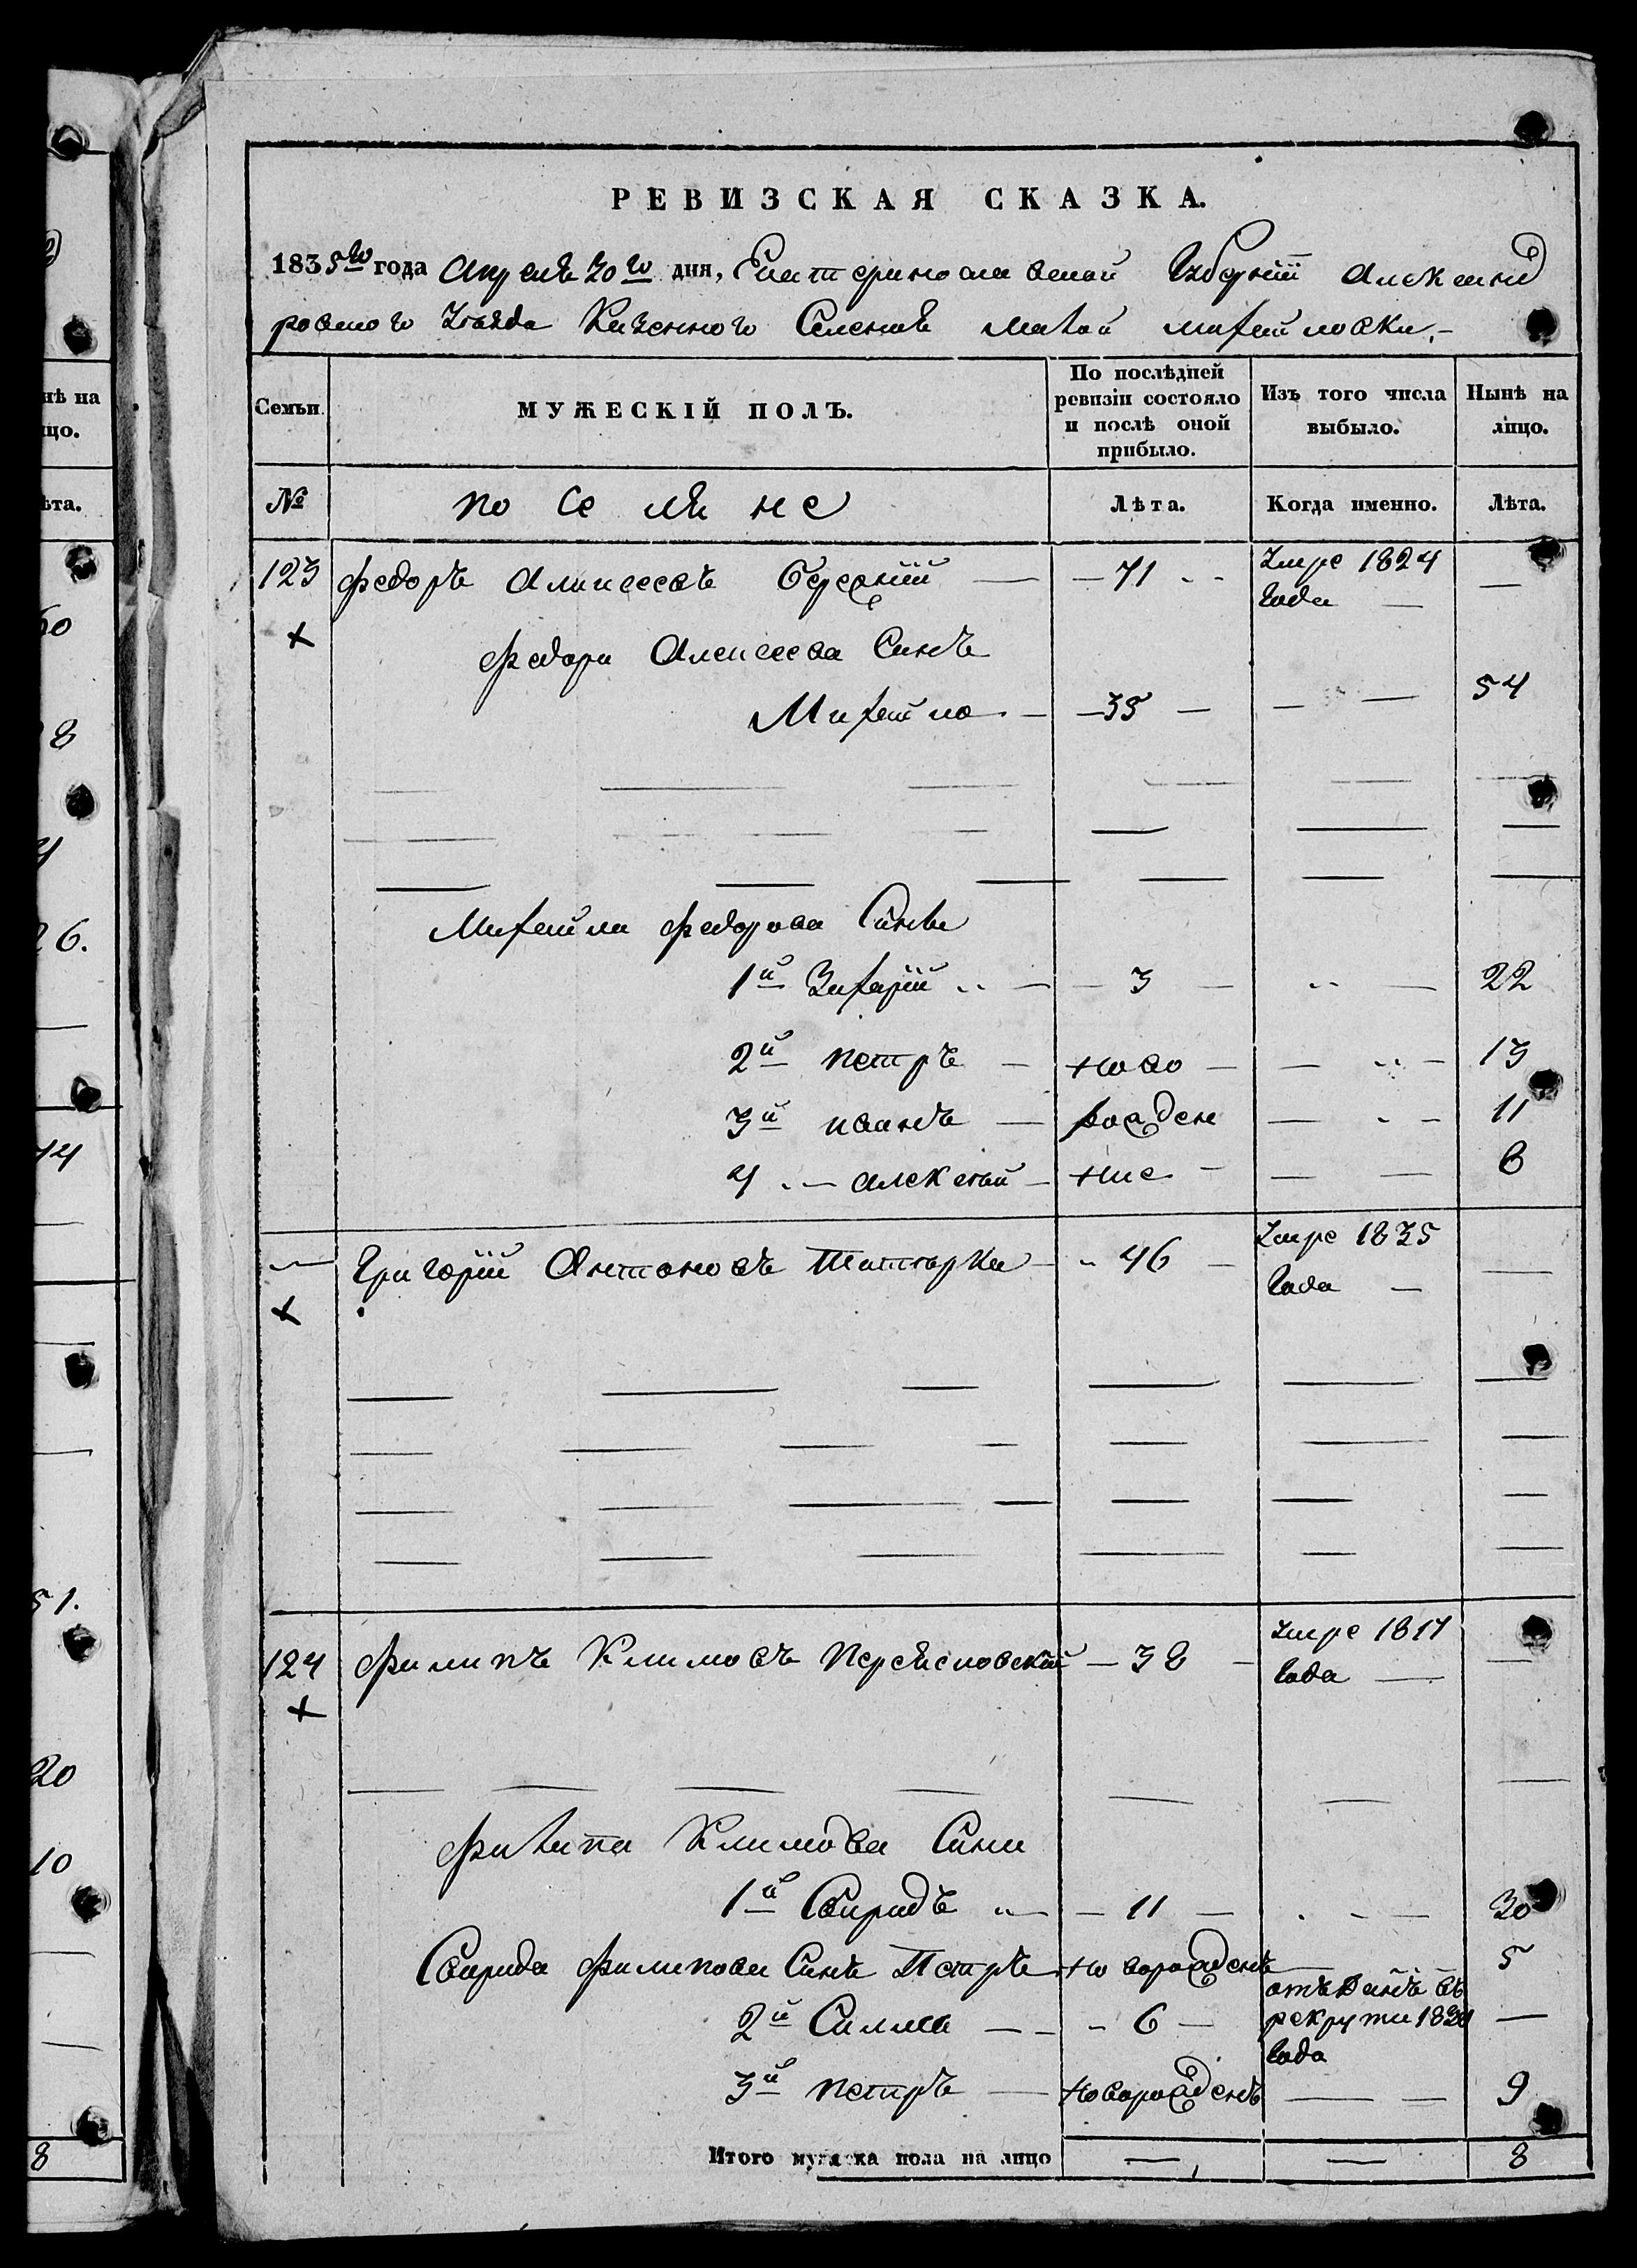 РЕВИЗСКАЯ СКАЗКА.
1835го года Апреля 30го дня, Екатеринославской Губернїи Александ
ровского Уезда Казенного Селенія Малой Михайловки.
Семьи
МУЖЕСКІЙ ПОЛЪ.
По послѣдней ревизіи состояло и послѣ оной прибыло.
Изъ того числа выбыло.
Нынѣ на лицо.
№
поселяне
Лѣта.
Когда именно.
Лѣта.
123 Федоръ Алексеевъ — 71 Умре 1824 —
года —
Федора Алексеева Синъ
Михайло — 35 — — — 54
Михайла Федорова Сини
1й Захарїй — 3 — — 22
2й Петръ — ново — — 13
3й иванъ — рожден — — 11
4 — алексѣй — ние — — 8
Григорїй Антоновъ — 46 — Умре 1835 —
года —
124 Филипъ Климовъ Переясловскїй — 38 — Умре 1817 —
года —
Филипа Климова Сини
1й Свиридъ — 11 — — 30
Свирида Филипова Синъ Петръ новорожденъ — 5
2й Силла — 6 — отъданъ въ
рекрути 1834 —
года
3й петръ — новорожденъ — — 9
Итого мужеска пола на лицо — — 8
нѣ на
ицо.
ѣта.
60
8
4
26.
14
51.
20
10
8